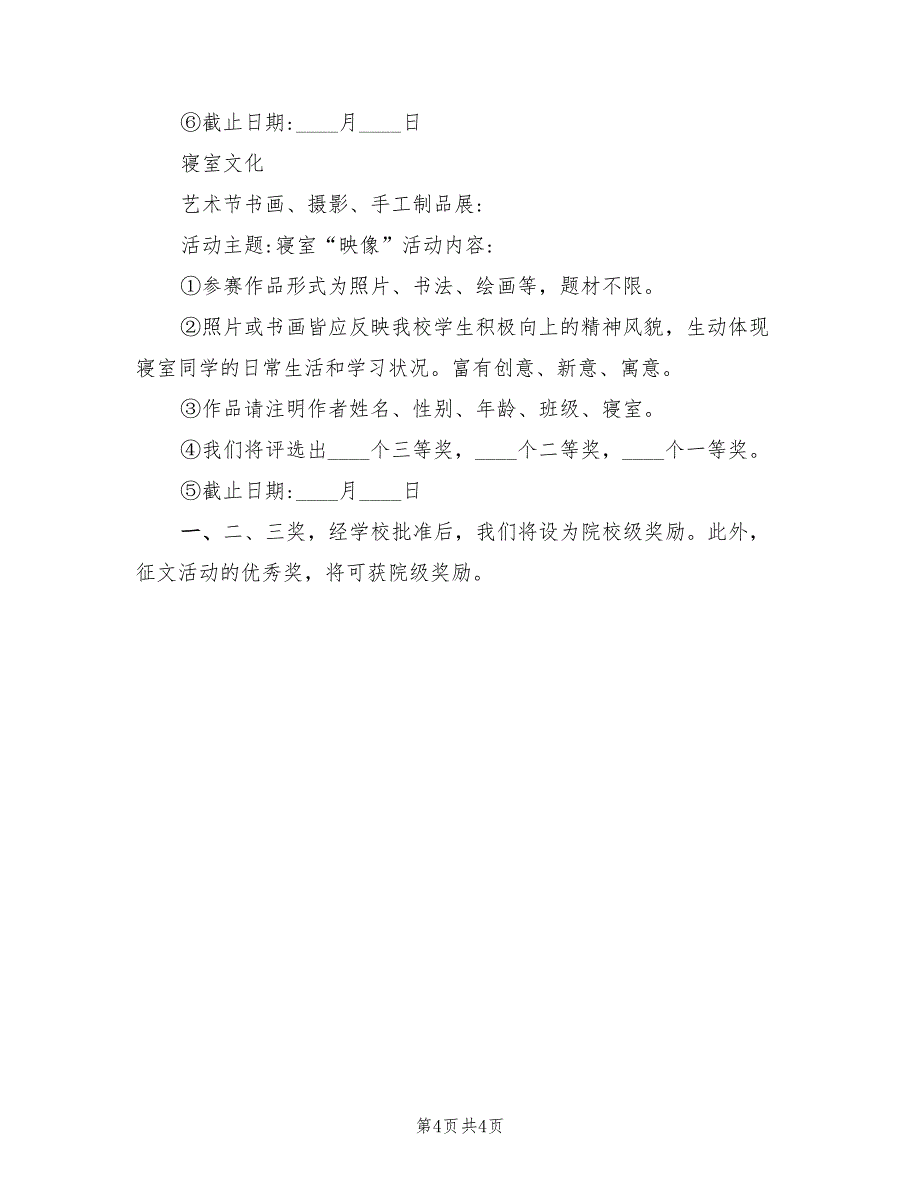 ⑥截止日期:____月____日
寝室文化
艺术节书画、摄影、手工制品展:
活动主题:寝室“映像”活动内容:
①参赛作品形式为照片、书法、绘画等，题材不限。
②照片或书画皆应反映我校学生积极向上的精神风貌，生动体现
寝室同学的日常生活和学习状况。富有创意、新意、寓意。
③作品请注明作者姓名、性别、年龄、班级、寝室。
④我们将评选出____个三等奖，____个二等奖，____个一等奖。
⑤截止日期:____月____日
一、二、三奖，经学校批准后，我们将设为院校级奖励。此外，
征文活动的优秀奖，将可获院级奖励。
第4页共4页